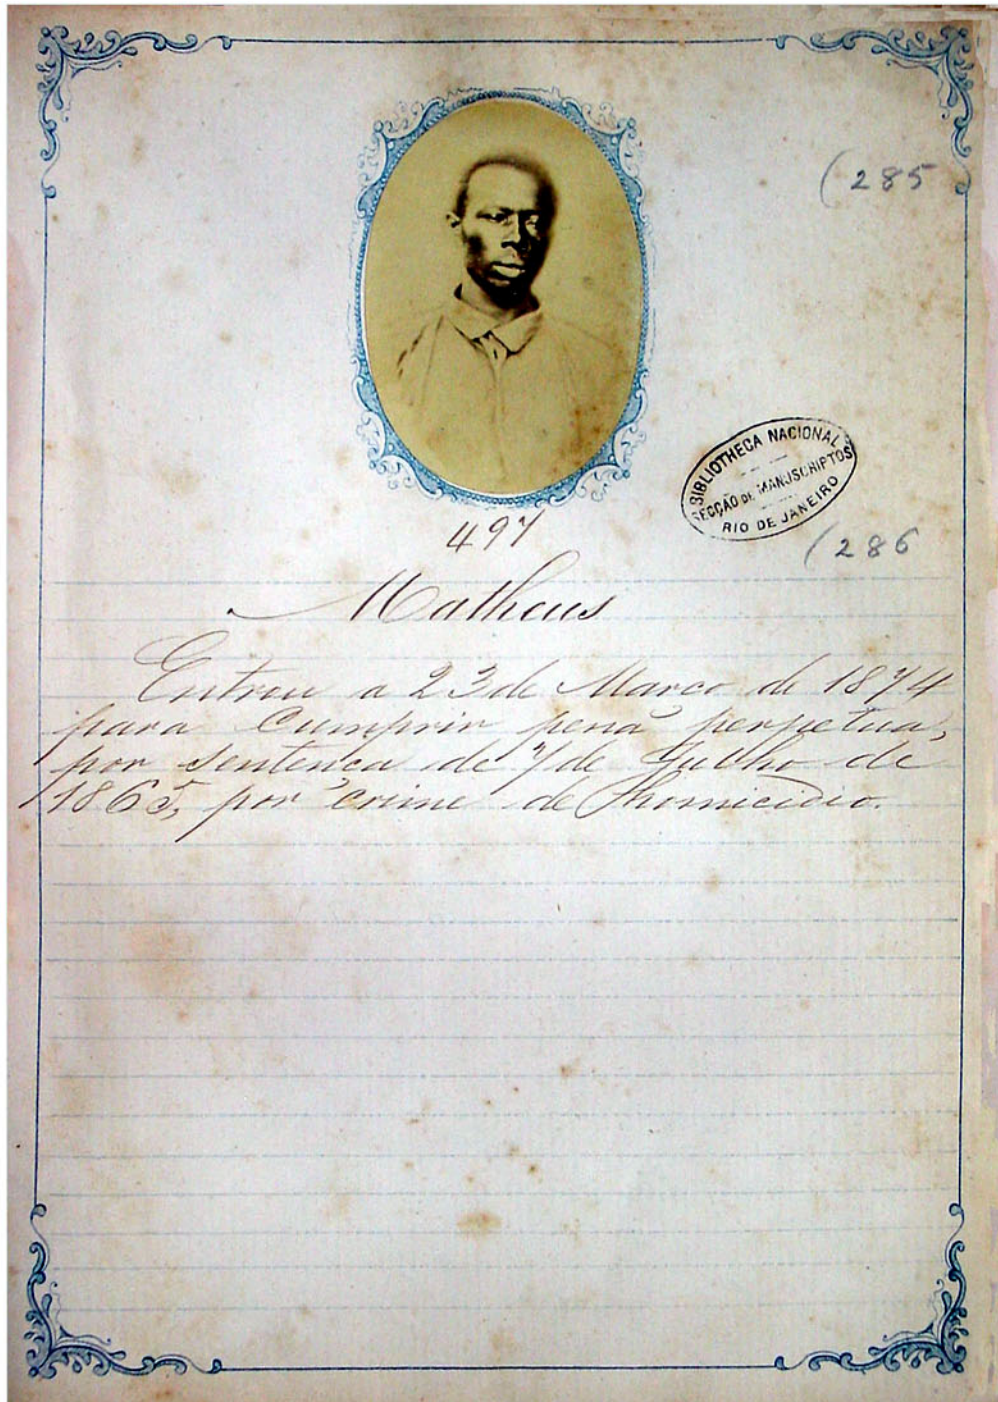 (285
BIBLIOTHECA NACIONAL
SECÇÃO DE MANUSCRIPTOS
RIO DE JANEIRO
497
(286
Matheus
Entrou a 23 de Março de 1874
para cumprir pena perpetua,
por sentença de 7 de Julho de
1865, por crime de homicidio.